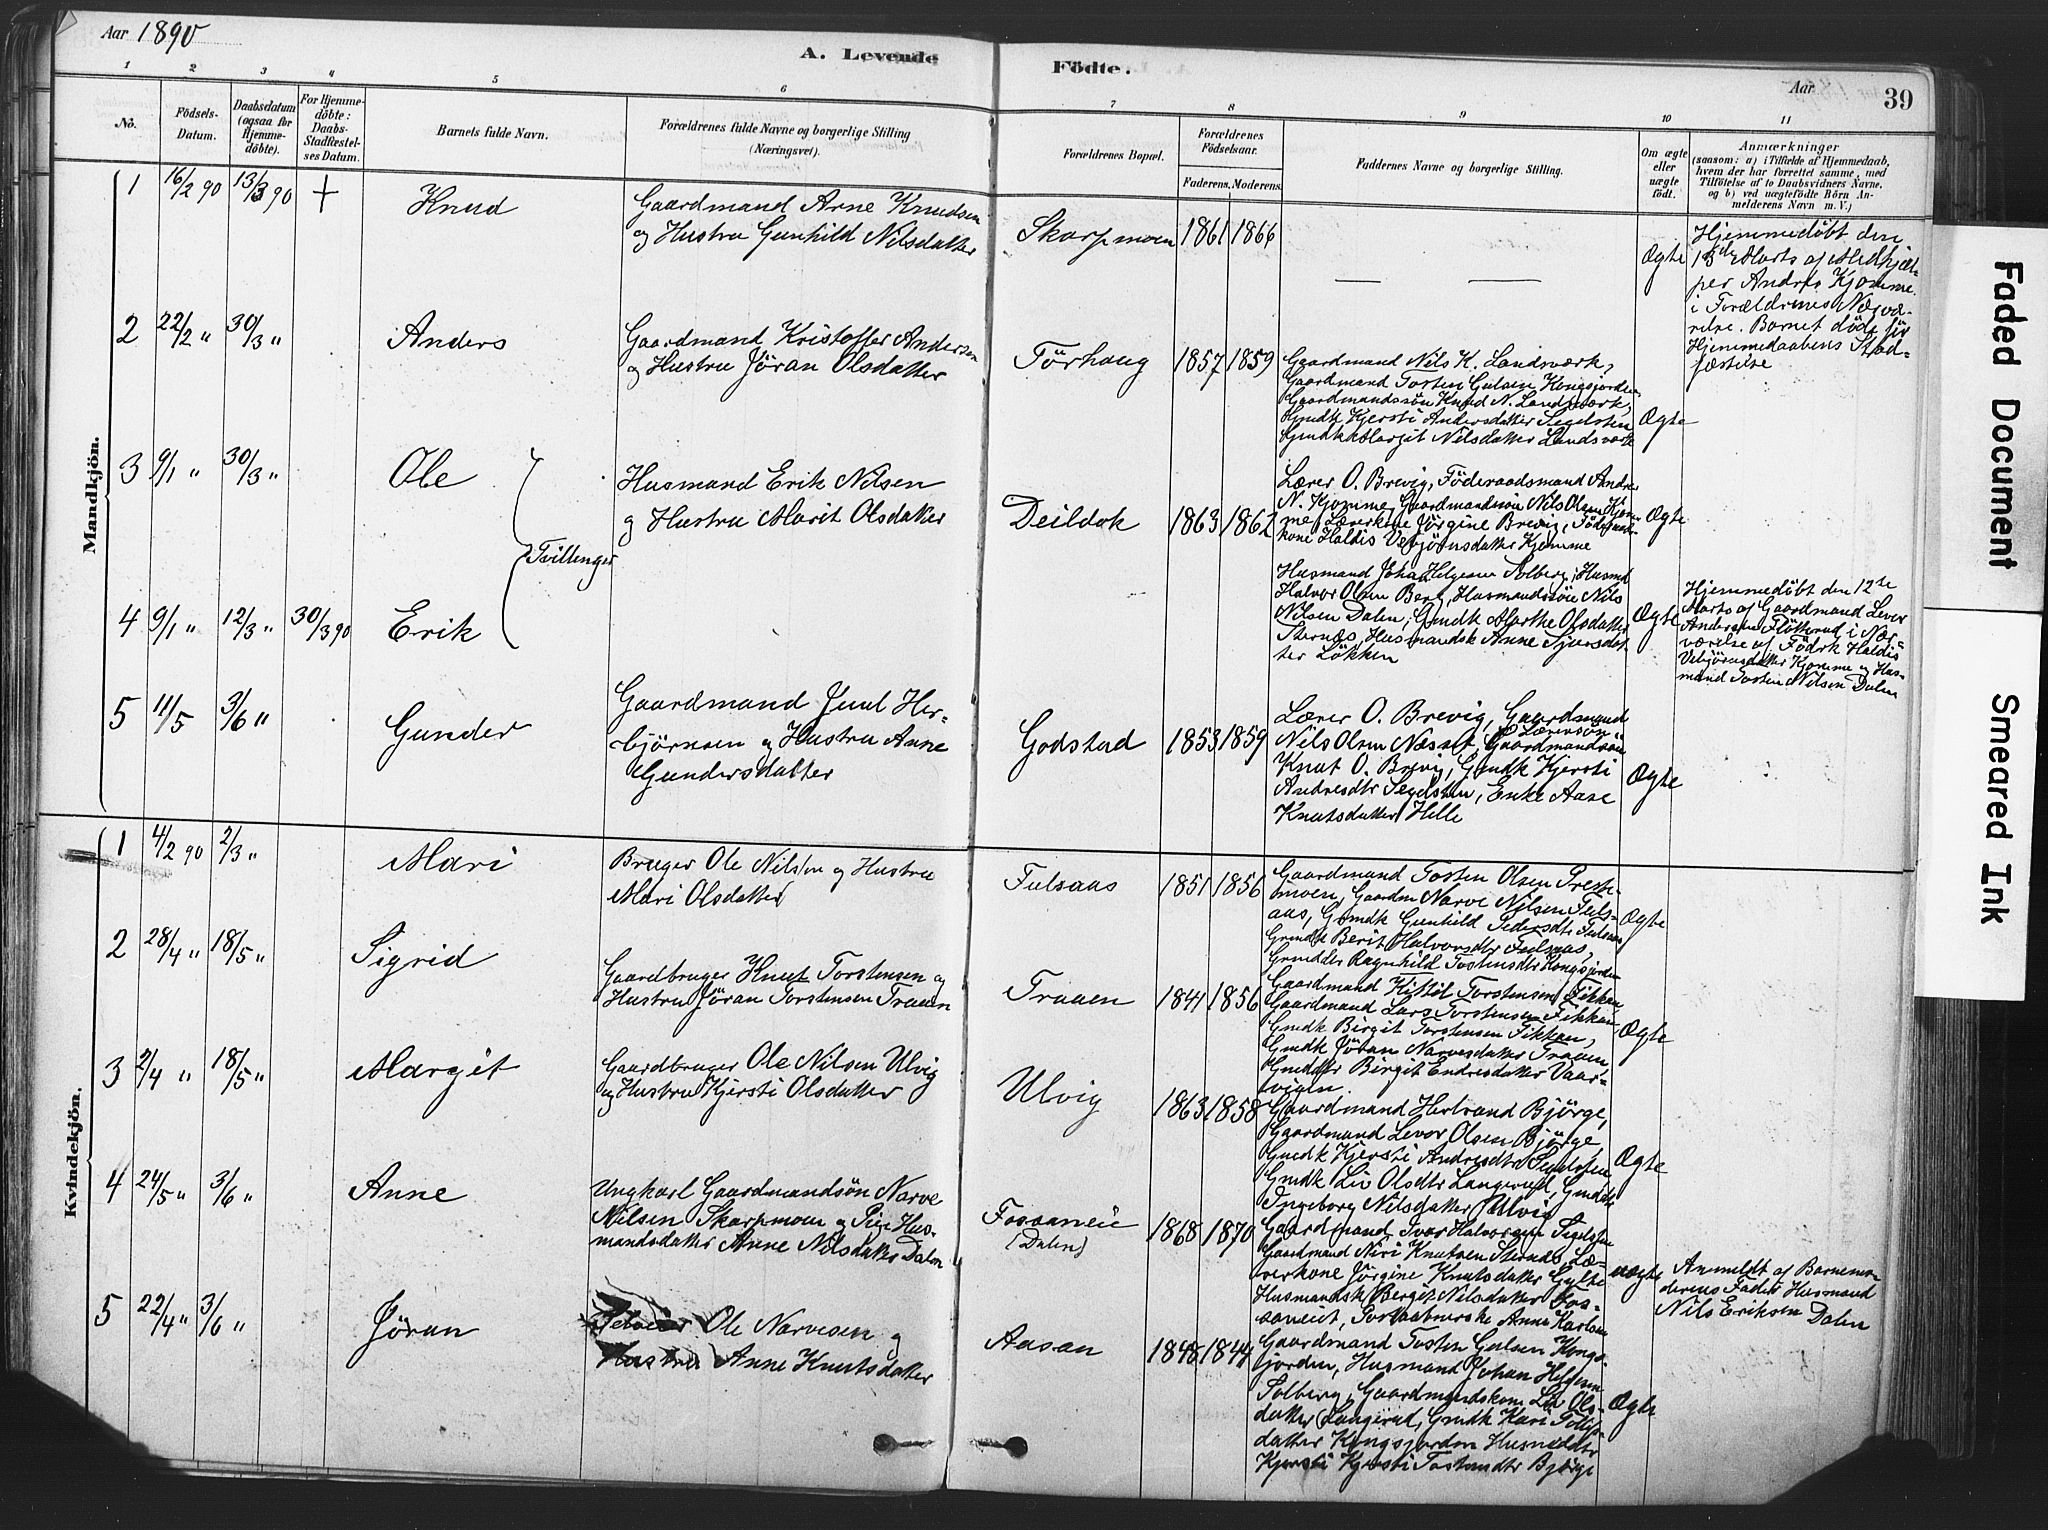 Aar 1890
A. Levende
Födte.
Aar
39
1
2
3
4
5
6
7
8
9
10
11
No.
Födsels-
Datum.
Daabsdatum
(ogsaa for
Hjemme-
döbte).
For Hjemme-
döbte:
Daabs-
Stadfæstel-
ses Datum.
Barnets fulde Navn.
Forældrenes fulde Navne og borgerlige Stilling
(Næringsvei).
Forældrenes Bopæl.
Forældrenes
Födselsaar.
Faderens. Moderens.
Faddernes Navne og borgerlige Stilling.
Om ægte
eller
uægte
födt.
Anmærkninger
(saasom: a) i Tilfælde af Hjemmedaab,
hvem der har forrettet samme, med
Tilföielse af to Daabsvidners Navne,
og b) ved uægtefödte Börn An-
melderens Navn m. V.)
Mandkjön.
1 16/2 90 13/3 90 + Knud
Gaardmand Arne Knudsen
og Hustru Gunhild Nilsdatter
Skarpmoen 1861 1866 — — Ægte
Hjemmedöbt den
13de Marts af Medhjæl-
per Andres Kjomme
i Forældrenes Nærvæ-
relse. Barnet döde för
Hjemmedaabens Stad-
fæstelse
2 22/2 " 30/3 " Anders
Gaardmand Kristoffer Andersen
og Hustru Jöran Olsdatter
Törhaug 1857 1859
Gaardmand Nils K. Landsværk,
Gaardmand Tosten Gulsen Kongsjorden
Gaardmandssön Knud N. Landsværk,
Gmdk Kjersti Andersdatter Tegelsten
Gmdk Margit Nilsdatter Landsværk
Ægte
3 9/1 " 30/3 " Ole
Tvillinger
Husmand Erik Nilsen
og Hustru Marit Olsdatter
Deildok 1863 1862
Lærer O. Brevig, Föderaadsmand Andres
N. Kjomme, Gaardmandssön Nils Olsen Kjom-
me, Lærerkone Jörgine Brevig, Föderaads-
kone Haldis Vebjörnsdatter Kjomme
Ægte
4 9/1 " 12/3 " 30/3 90 Erik
Husmand Johan Helgesen Solberg, Husmd
Halvor Olsen Berg, Husmandssön Nils
Nilsen Dalen, Gmdk Marthe Olsdatter
Sternæs, Husmandsk Anne Sjursdat-
ter Lökken
Ægte
Hjemmedöbt den 12te
Marts af Gaardmand Levor
Andersen Flötterud i Nær-
værelse af Födrk Haldis
Vebjörnsdatter Kjomme og Hus-
mand Tosten Nilsen Dalen
5 11/5 3/6 " Gunder
Gaardmand Juul Her-
björnsen og Hustru Anne
Gundersdatter
Godstad 1853 1859
Lærer O. Brevig, Gaardmand
Nils Olsen Næset, Lærersön
Knut O. Brevig, Gmdk Kjersti
Andresdtr Tegelsten, Enke Aase
Knutsdatter Helle
Ægte
Kvindekjön.
1 4/2 90 2/3 " Mari
Bruger Ole Nilsen og Hustru
Mari Olsdatter
Fulsaas 1851 1856
Gaardmand Tosten Olsen Preste-
moen, Gaardm Narve Nilsen Fuls-
aas, Gmdk Gunhild Pedersdtr Fulsaas
Gmdk Berit Halvorsdtr Fulsaas,
Gmddtr Ragnhild Tostensdtr Kongsjorden
Ægte
2 28/4 " 18/5 " Sigrid
Gaardbruger Knut Torstensen og
Hustru Jöran Torstensen Traaen
Traaen 1841 1856
Gaardmand Kittil Torstensen Fikkan
Gaardmand Lars Torstensen Fikkan
Gmdk Birgit Torstensen Fikkan,
Gmdk Jöran Narvesdatter Traaen,
Gmddtr Birgit Endresdatter Vaar-
viken.
Ægte
3 2/4 " 18/5 " Margit
Gaardbruger Ole Nilsen Ulvig
og Hustru Kjersti Olsdatter
Ulvig 1863 1858
Gaardmand Hertrand Björge,
Gaardmand Levor Olsen Björge,
Gmdk Kjersti Andresdtr
Gmdk Liv Olsdtr Langerud, Gmddtr
Ingeborg Nilsdatter Ulvig
Ægte
4 24/5 " 3/6 " Anne
Ungkarl Gaardmandsön Narve
Nilsen Skarpmoen og Pige Hus-
mandsdatter Anne Nilsdatter Dalen
Fossaneie
(Dalen)
1868 1870
Gaardmand Ivar Halvorsen Tigelsten
Gaardmand Niri Knutsen Sternæs, Læ-
rerkone Jörgine Knutsdatter Gylte
Husmandsk Bergit Nilsdatter Fos-
saneiet, Anne Karlsen
uægte
Anmeldt af Barnemo-
derens Fader Husmand
Nils Eriksen Dalen
5 22/4 " 3/6 " Jöran
Ole Narvesen og
Hustru Anne Knutsdatter
Aasan 1848 1844
Gaardmand Tosten Gulsen Kongs-
jorden, Husmand Johan Helgesen
Solberg, Gaardmandskone Liv Ols-
datter Langerud, Gmdk Kari
datter Kongsjorden Husmddtr
Kjersti Kjersti Tostensdtr Björge
Ægte
Faded Document
Smeared Ink